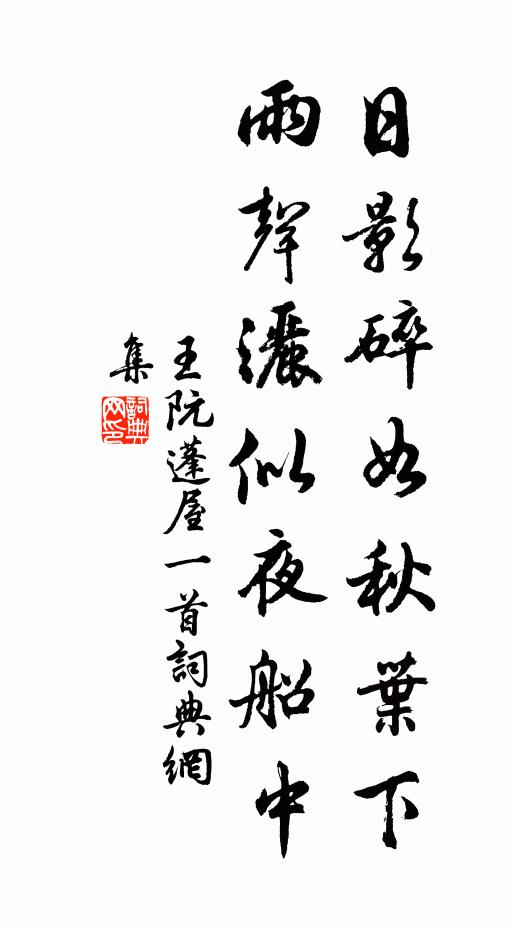 日影碎如秋葉下
雨聲灑似夜船中
王阮蓬屋一首詞典網
集
詞典网印